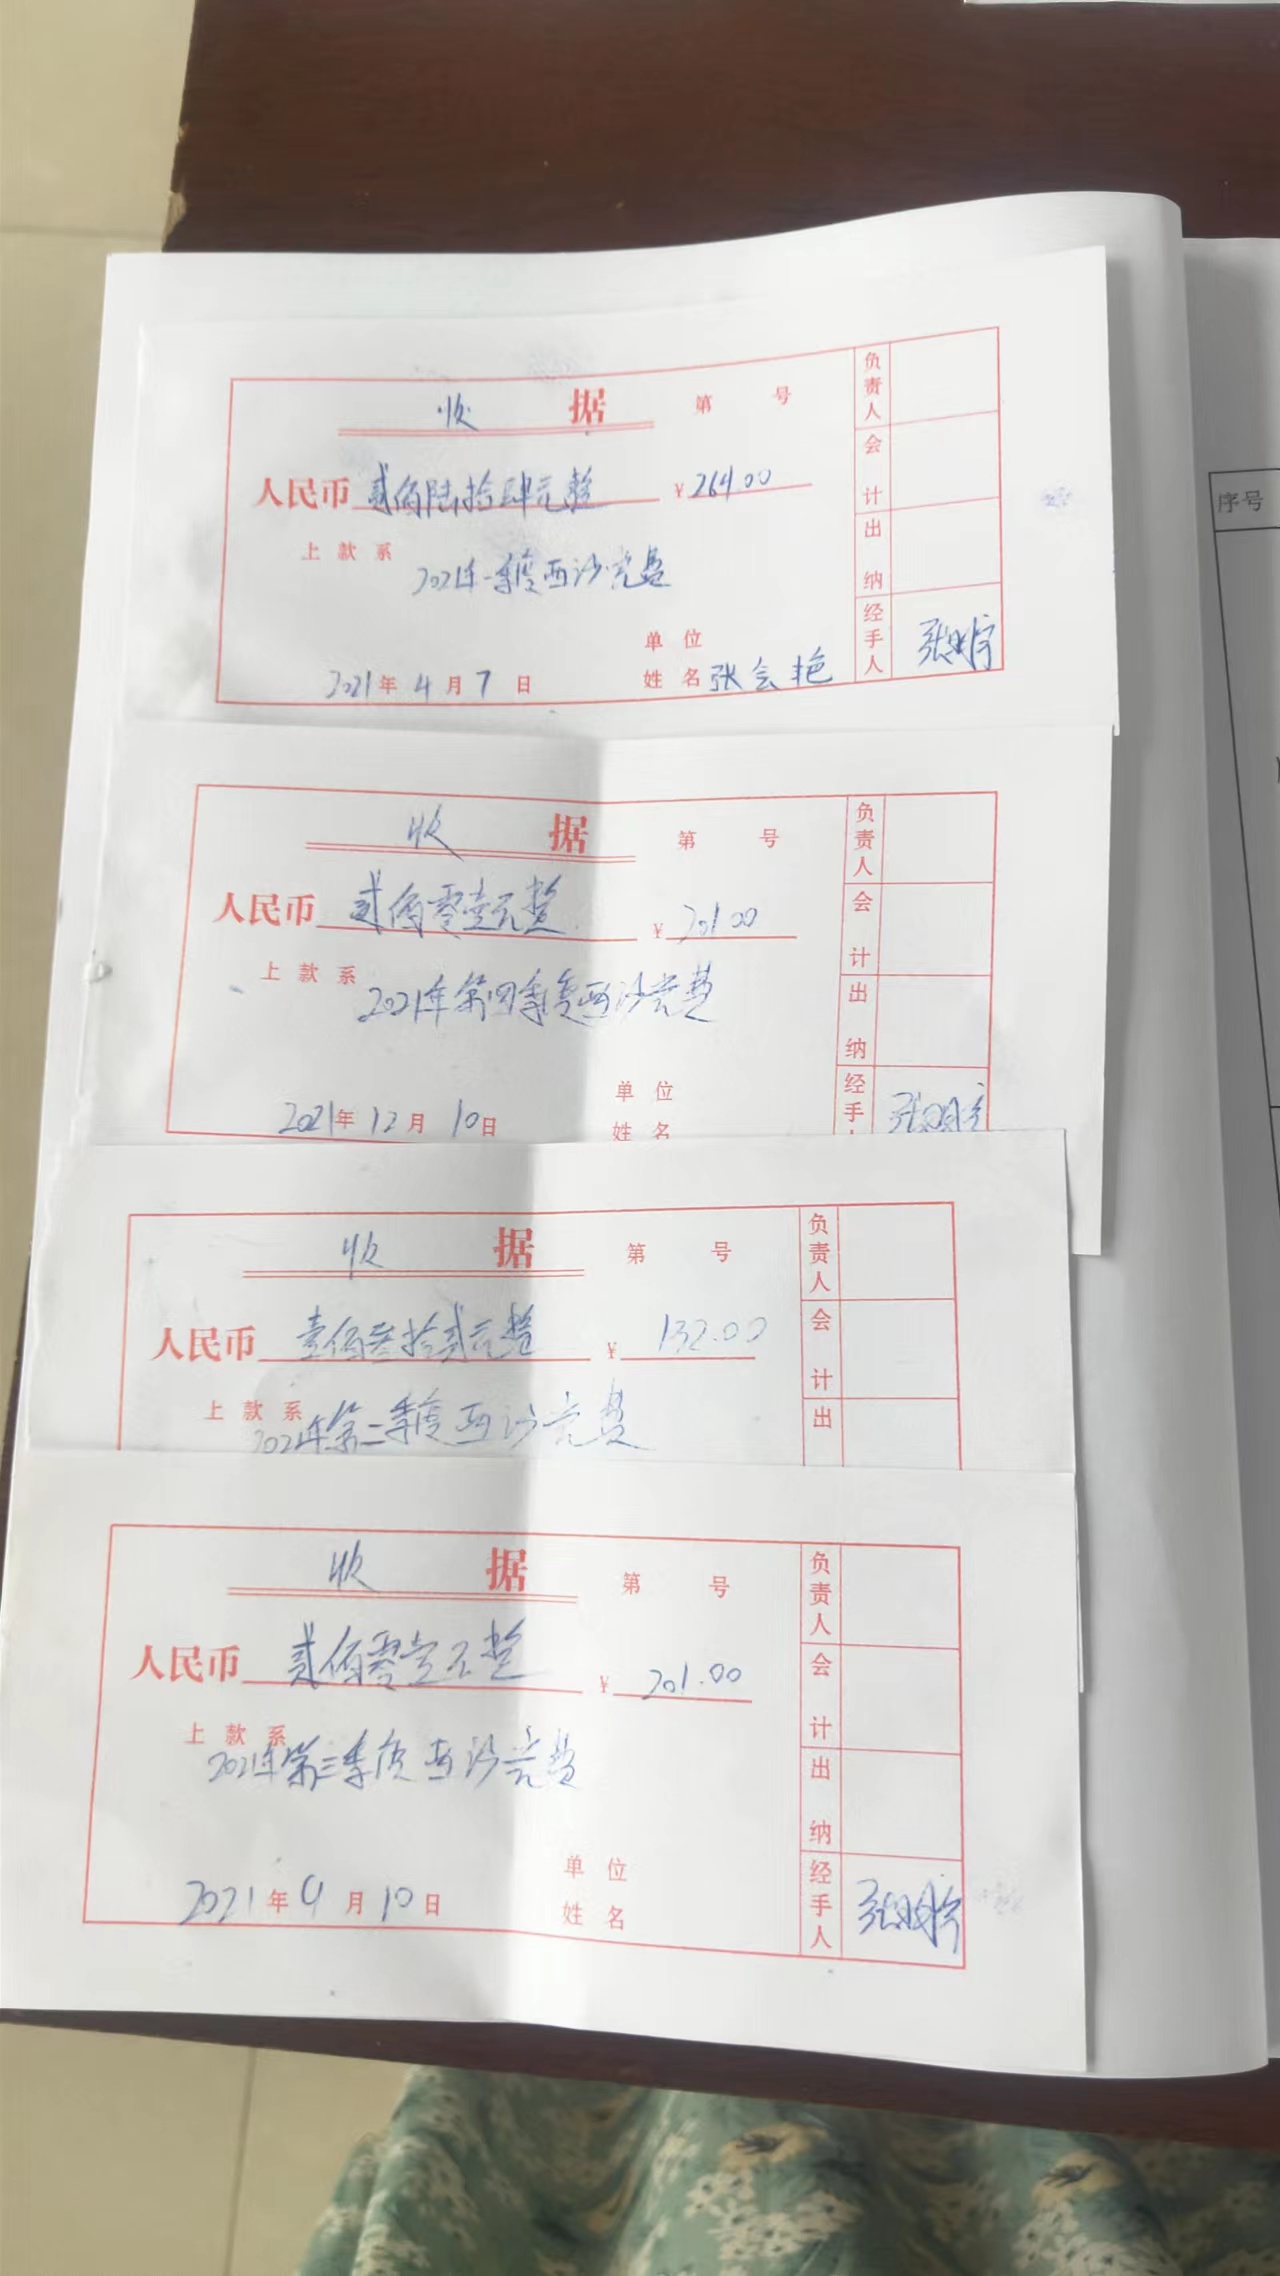 收 据 第 号
人民币 贰佰陆拾肆元整 ¥264.00
上款系
2021年一季度西沙党费
单位
2021年4月7日 姓名 张会艳
负责人
会计
出纳
经手人
收 据 第 号
人民币 贰佰零壹元整 ¥201.00
上款系
2021年第四季度西沙党费
单位
2021年12月10日 姓名
负责人
会计
出纳
经手
收 据 第 号
人民币 壹佰叁拾贰元整 ¥132.00
上款系
2021年第二季度西沙党费
负责人
会计
出
收 据 第 号
人民币 贰佰零壹元整 ¥201.00
上款系
2021年第三季度西沙党费
单位
2021年9月10日 姓名
负责人
会计
出纳
经手人
序号